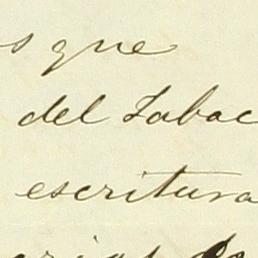 s que
del Tabac
escritura